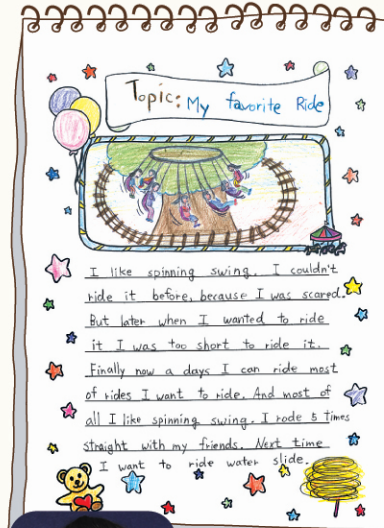 Topic: My favorite Ride
I like spinning swing. I couldn't
ride it before, because I was scared.
But later when I wanted to ride
it I was too short to ride it.
Finally now a days I can ride most
of rides I want to ride. And most of
all I like spinning swing. I rode 5 times
straight with my friends. Next time
I want to ride water slide.